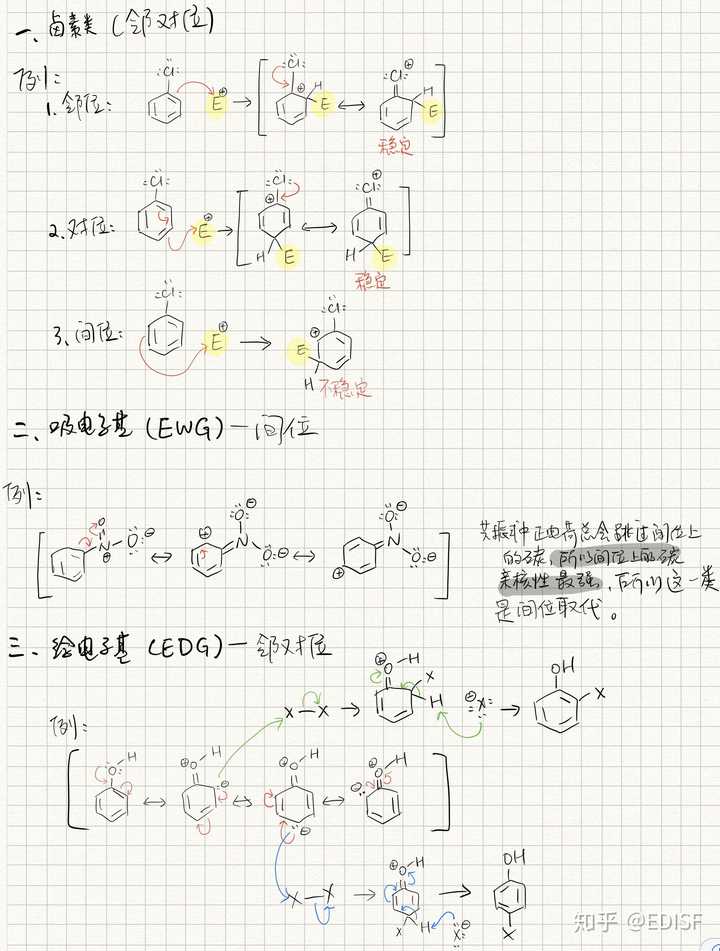 一、卤素类(邻对位)
例:
1.邻位:
:Cl:
E⊕
:Cl:
⊕
H
E
:Cl⊕
H
E
稳定
2.对位:
:Cl:
E⊕
:Cl:
⊕
H
E
:Cl⊕
H
E
稳定
3.间位:
:Cl:
E⊕
:Cl:
⊕
E
H
不稳定
二、吸电子基(EWG)一间位
例:
共振中正电荷总会跳过间位上
的碳,所以间位上的碳
亲核性最强,所以这一类
是间位取代。
三、给电子基(EDG)一邻对位
例:
X—X
⊕O—H
X
H
⊖:X:
OH
X
X—X
⊕O—H
X
H
X⊖
OH
X
知乎 @EDISF